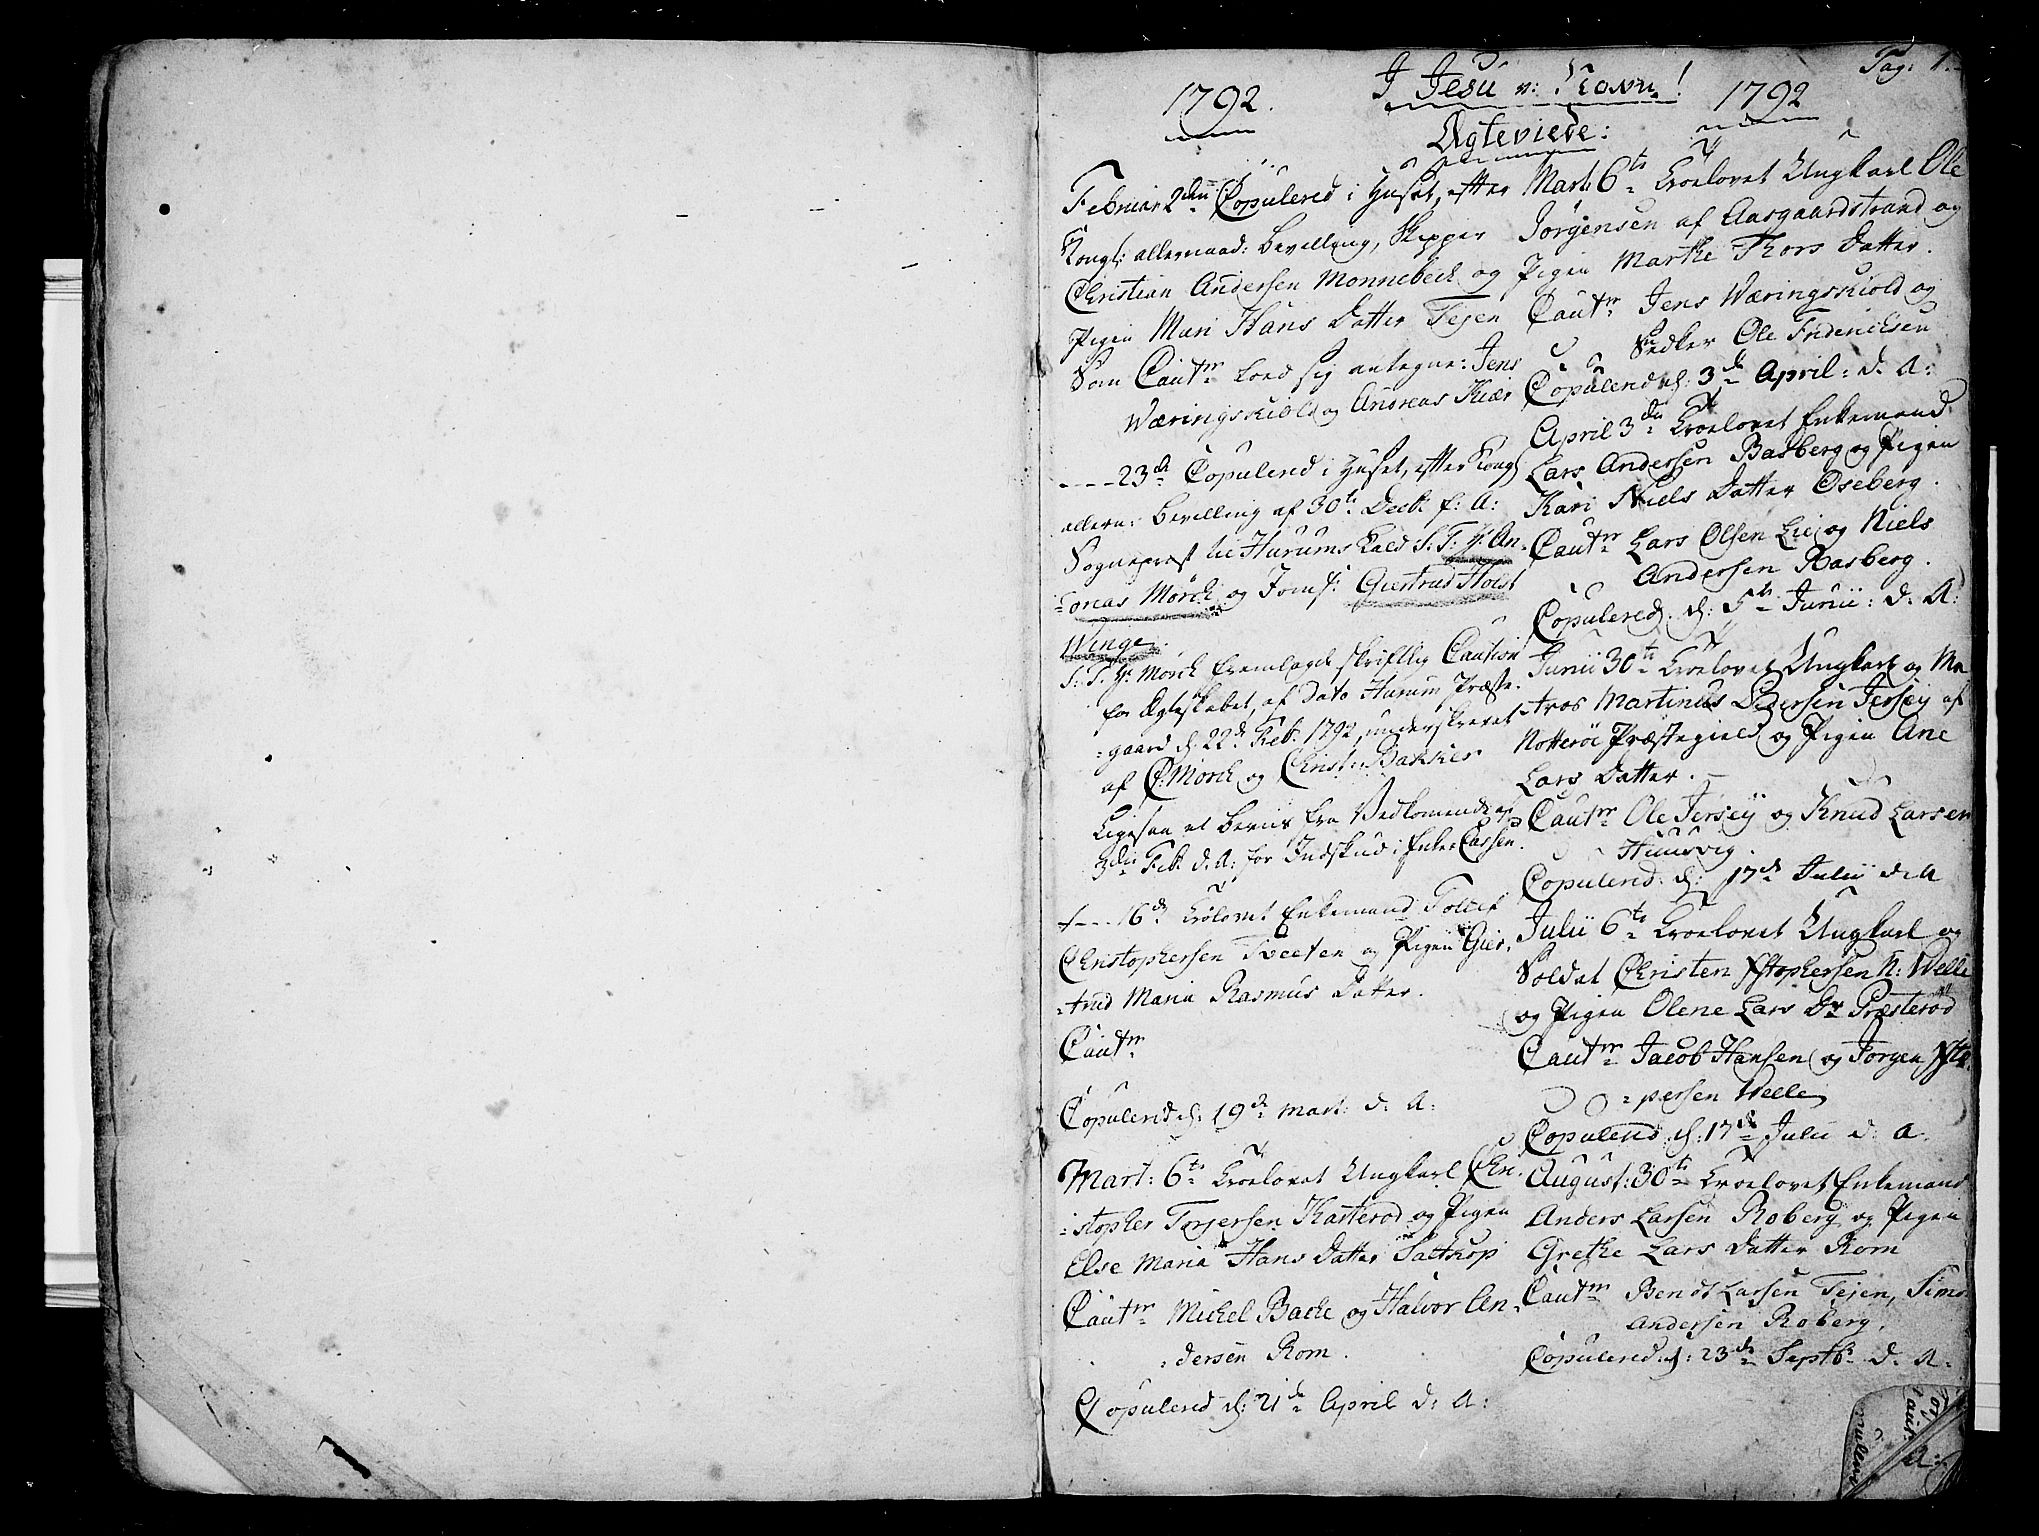 Pag: 1.
I Jesu Navn!
1792. 1792
Ægteviede:
Februar 2den Copulered i Huset, efter
Kongl: allernaad: Bevilling, Skipper
Christian Andersen Monnebeck og
Pigen Mari Hans Datter Tejen
Som Cautr. lod sig antegne: Jens
Wæringskiold og Andreas Kiær
---- 23d Copulered i Huset, efter Kongl
allern: Bevilling af 30te Decb: f: A:
Sognepræst til Hurums Kald S: T: Hr An-
-dreas Mørch og Jomf: Giertrud Holst
Winge.
S: T. Hr Mørch fremlagde skriftlig Caution
for Ægteskabet, af Dato Hurum Præste-
-gaard d: 22d Feb: 1792, underskrevet
af C: Mørch og Christ: Bakker
Ligesaa et Beviis fra Vedkommende af
3die Feb: d. A: for Indskud i Enke Cassen.
+--- 16d Trolovet Enkemand Tollef
Christophersen Tveeten og Pigen Gier-
-trud Maria Rasmus Datter.
Cautr
Copulered d: 19de Mart: d: A:
Mart: 6te Troelovet Ungkarl Chri-
-stopher Torjersen Kasterod og Pigen
Else Maria Hans Datter Saltkop
Cautr Michel Bache og Halvor An-
-dersen Rom.
Copulered d: 21de April d: A:
Mart: 6te Troelovet Ungkarl Ole
Jørgensen af Aasgaardstrand og
Pigen Marthe Thors Datter.
Cautr Jens Wæringskiold og
Snedker Ole Friderichsen
Copulered d: 3de April: d. A:
April 3die Troelovet Enkemand
Lars Andersen Basberg og Pigen
Kari Niels Datter Oseberg.
Cautr Lars Olsen Lie og Niels
Andersen Basberg.
Copulered d: 5te Junii: d. A:
Junii 30te Troelovet Ungkarl og Ma-
-tros Martinus Pedersen Jersøy af
Nøtterøe Præstegield og Pigen Ane
Lars Datter.
Cautr Ole Jersøy og Knud Larsen
Huusvig.
Copulered d: 17de Julii d. A
Julii 6te Troelovet Ungkarl og
Soldat Christen Xstophersen N: Welle
og Pigen Olene Lars Dr Præsterød
Cautr Jacob Hansen og Jørgen Xsto-
-phersen Welle
Copulered d: 17de Julii d: A.
August: 30te Troelovet Enkemand
Anders Larsen Roberg og Pigen
Grethe Lars Datter Rom
Cautr Bendt Larsen Tejen, Simo
Andersen Roberg.
Copulered d: 23de Septbr d. A: